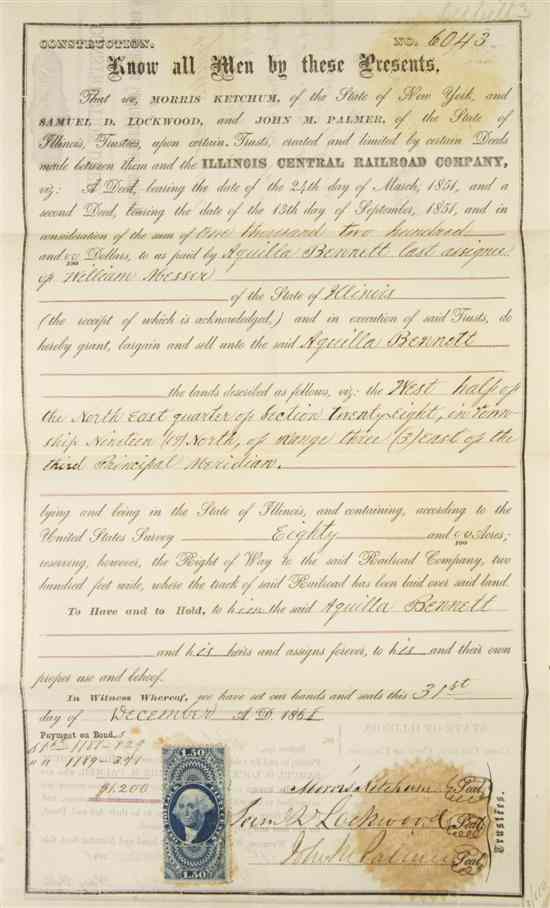 CONSTRUCTION. NO. 6043
Know all Men by these Presents,
That we, MORRIS KETCHUM, of the State of New York, and
SAMUEL D. LOCKWOOD, and JOHN M. PALMER, of the State of
Illinois, Trustees, upon certain Trusts, created and limited by certain Deeds
made between them and the ILLINOIS CENTRAL RAILROAD COMPANY,
viz: A Deed, bearing the date of the 24th day of March, 1851, and a
second Deed, bearing the date of the 13th day of September, 1851, and in
consideration of the sum of One thousand two hundred
and 00/100 Dollars, to us paid by Aquilla Bennett last assignee
of William Messer
of the State of Illinois
(the receipt of which is acknowledged,) and in execution of said Trusts, do
hereby grant, bargain and sell unto the said Aquilla Bennett
the lands described as follows, viz: the West half of
the North East quarter of Section twenty Eight, in Town-
ship Nineteen (19) North, of range three (3) east of the
third Principal Meridian.
lying and being in the State of Illinois, and containing, according to the
United States Survey Eighty and 00/100 Acres;
reserving, however, the Right of Way to the said Railroad Company, two
hundred feet wide, where the track of said Railroad has been laid over said land.
To Have and to Hold, to him the said Aquilla Bennett
and his heirs and assigns forever, to his and their own
proper use and behoof.
In Witness Whereof, we have set our hands and seals this 31st
day of December A. D. 186
Payment on Bonds
$1,200
1.50 1.50
1.50 1.50
Morris Ketchum Seal
Sam D Lockwood Seal
John M Palmer Seal
Trustees.